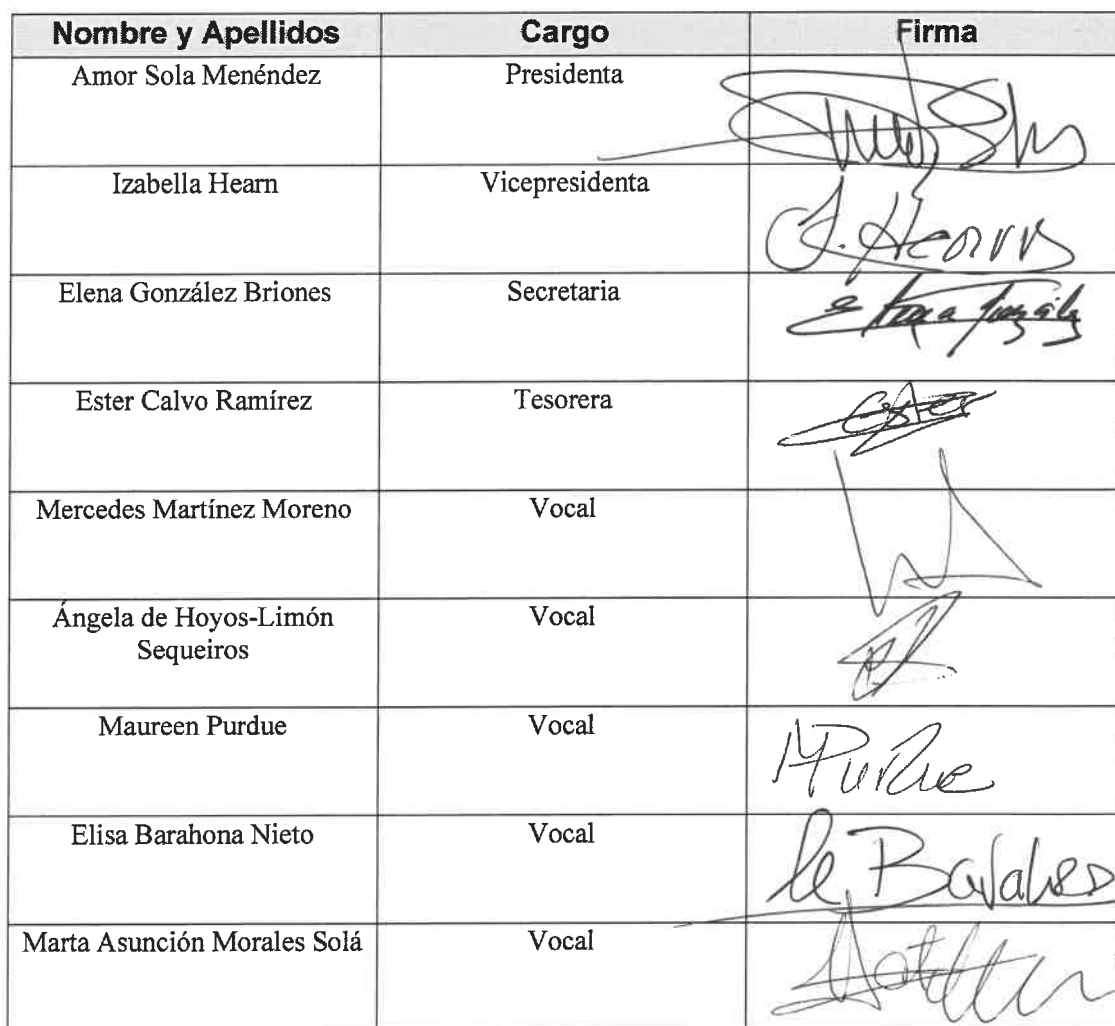 Nombre y Apellidos Cargo Firma
Amor Sola Menéndez Presidenta
Izabella Hearn Vicepresidenta
I. Hearn
Elena González Briones Secretaria
Elena González
Ester Calvo Ramírez Tesorera
Ester
Mercedes Martínez Moreno Vocal
Ángela de Hoyos-Limón
Sequeiros Vocal
Maureen Purdue Vocal
MPurdue
Elisa Barahona Nieto Vocal
Marta Asunción Morales Solá Vocal